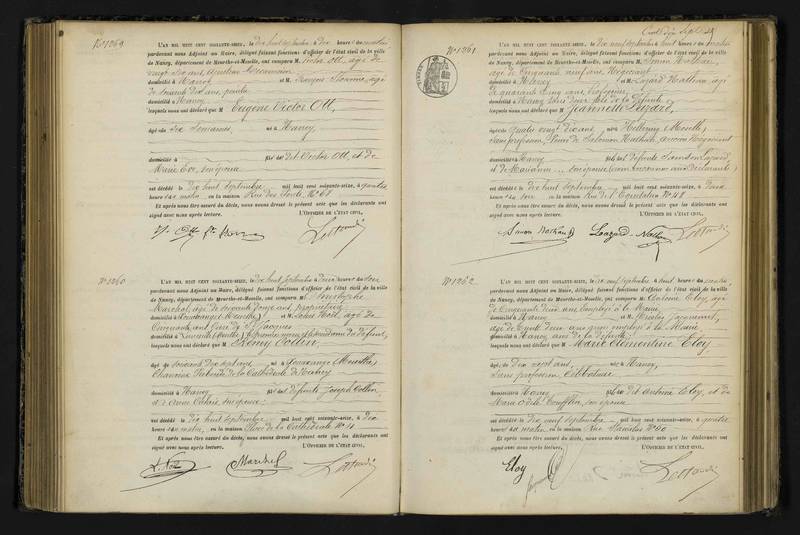 N° 1259
L'AN MIL HUIT CENT SOIXANTE-SEIZE, le dix huit septembre à dix heures du matin
pardevant nous Adjoint au Maire, délégué faisant fonctions d'officier de l'état civil de la ville
de Nancy, département de Meurthe-et-Moselle, ont comparu M. Victor Ott, âgé de
vingt six ans,
domicilié à Nancy et M. François âgé
de soixante dix ans, peintre
domicilié à Nancy
lesquels nous ont déclaré que M Eugène Victor Ott,
âgé de six semaines, né à Nancy
domicilié à fils de dit Victor Ott, et de
Marie Eve, son épouse
est décédé le dix huit septembre mil huit cent soixante-seize, à quatre
heures du matin en la maison Rue des N° 68
Et après nous être assuré du décès, nous avons dressé le présent acte que les déclarants ont
signé avec nous après lecture. L'OFFICIER DE L'ÉTAT CIVIL,
N° 1260
L'AN MIL HUIT CENT SOIXANTE-SEIZE, le dix huit septembre à deux heures du soir
pardevant nous Adjoint au Maire, délégué faisant fonctions d'officier de l'état civil de la ville
de Nancy, département de Meurthe-et-Moselle, ont comparu M.
Marchal, âgé de soixante douze ans, propriétaire
domicilié à et M. Louis Noël, âgé de
Cinquante ans, Curé de St Jacques
domicilié à Lunéville
lesquels nous ont déclaré que M Rémy Collin,
âgé de soixante dix sept ans, né à
Chanoine de la Cathédrale de Nancy
domicilié à Nancy fils de défunts Joseph Collin,
et d'Anne son épouse
est décédé le dix huit septembre mil huit cent soixante-seize, à dix
heures du matin, en la maison Place de la Cathédrale N° 4
Et après nous être assuré du décès, nous avons dressé le présent acte que les déclarants ont
signé avec nous après lecture. L'OFFICIER DE L'ÉTAT CIVIL,
L. Noël Marchal
N° 1261
L'AN MIL HUIT CENT SOIXANTE-SEIZE, le dix neuf septembre à huit heures du matin
pardevant nous Adjoint au Maire, délégué faisant fonctions d'officier de l'état civil de la ville
de Nancy, département de Meurthe-et-Moselle, ont comparu M. Simon Nathan,
âgé de Cinquante neuf ans, Négociant
domicilié à Nancy et M. Lazard Nathan, âgé
de quarante cinq ans, Professeur
domicilié à Nancy tous deux fils de la défunte,
lesquels nous ont déclaré que M Jeannette Lazard,
âgée de quatre vingt dix ans, née à Hellering (Moselle)
sans profession, Veuve de Salomon Nathan, ancien Négociant
domiciliée à Nancy fille de défunts Samson Lazard
et de Mariana ... son épouse,
est décédée le dix huit septembre mil huit cent soixante-seize, à deux
heures du soir en la maison Rue de l'Equitation N° 48
Et après nous être assuré du décès, nous avons dressé le présent acte que les déclarants ont
signé avec nous après lecture. L'OFFICIER DE L'ÉTAT CIVIL,
Simon Nathan Lazard Nathan
N° 1262
L'AN MIL HUIT CENT SOIXANTE-SEIZE, le dix neuf septembre à huit heures du matin,
pardevant nous Adjoint au Maire, délégué faisant fonctions d'officier de l'état civil de la ville
de Nancy, département de Meurthe-et-Moselle, ont comparu M. Antoine Eloy, âgé
de Cinquante deux ans, Employé à la Mairie
domicilié à Nancy et M. Nicolas Jacquemot,
âgé de trente deux ans aussi employé à la Mairie
domicilié à Nancy
lesquels nous ont déclaré que M Marie Clémentine Eloy,
âgée de dix sept ans, née à Nancy,
sans profession, Célibataire
domiciliée à Nancy fille de dit Antoine Eloy, et de
Marie son épouse
est décédée le dix neuf septembre mil huit cent soixante-seize, à quatre
heures du matin, en la maison Rue Stanislas N° 60
Et après nous être assuré du décès, nous avons dressé le présent acte que les déclarants ont
signé avec nous après lecture. L'OFFICIER DE L'ÉTAT CIVIL,
Eloy